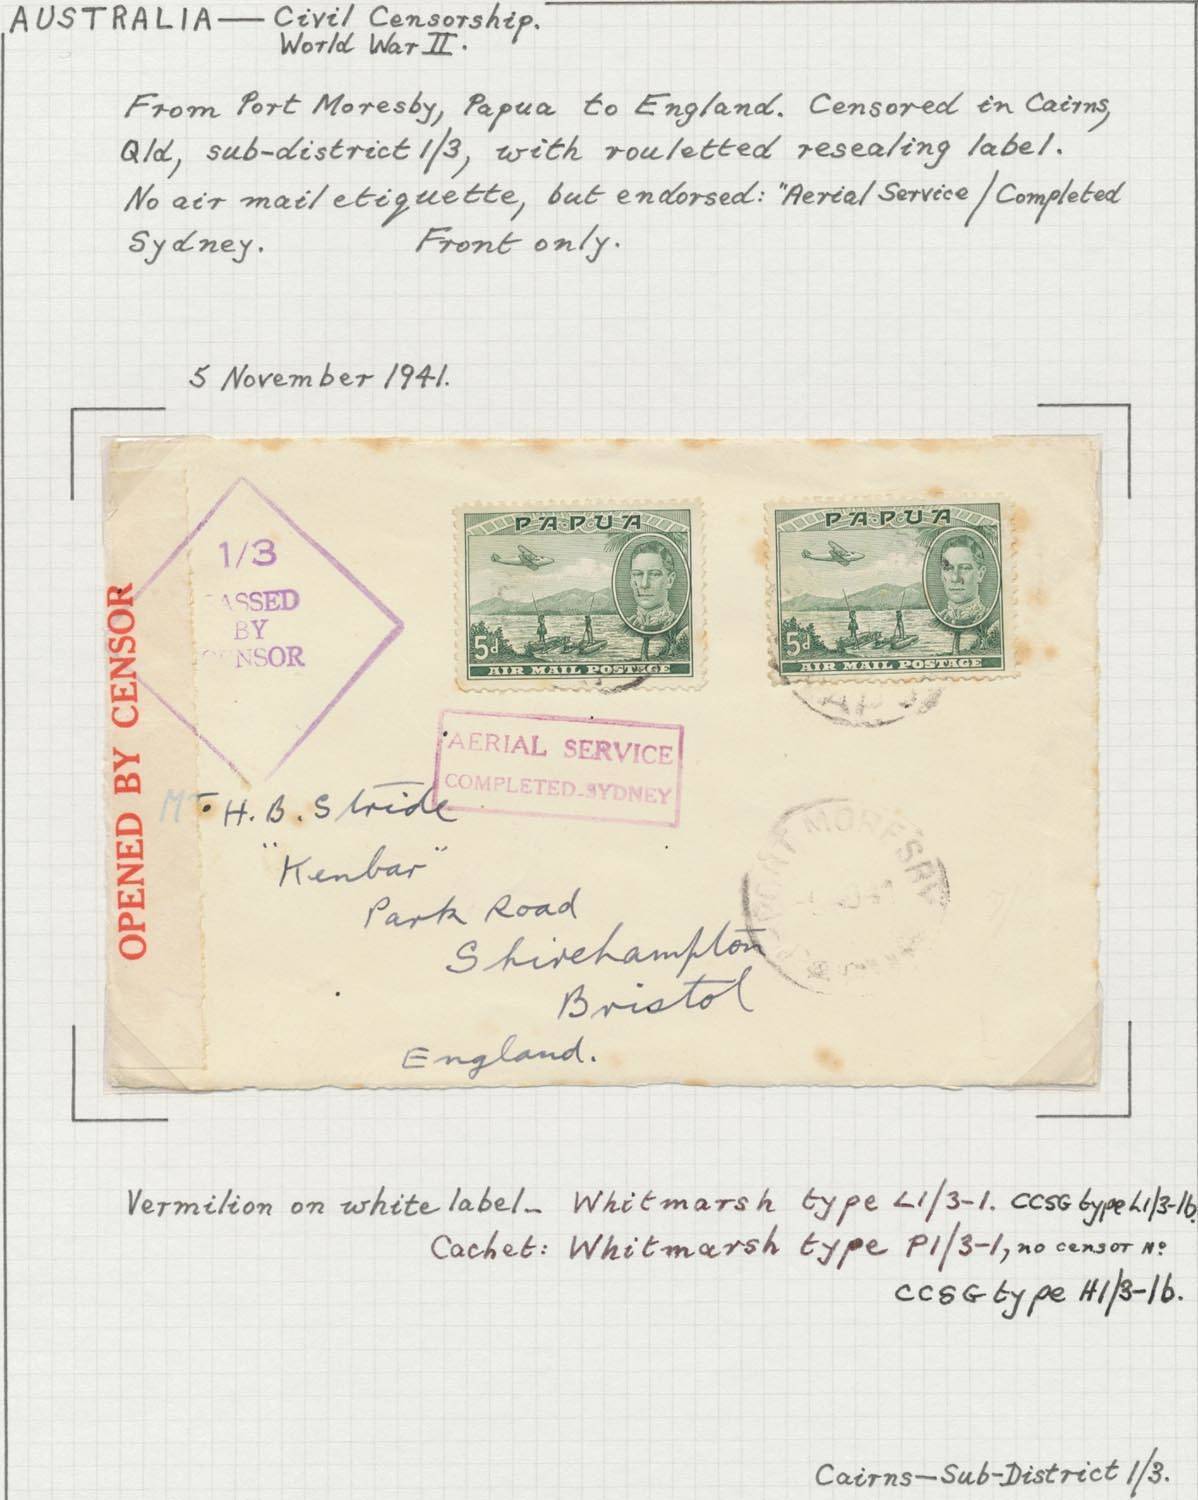 AUSTRALIA — Civil Censorship.
World War II.
From Port Moresby, Papua to England. Censored in Cairns,
Qld, sub-district 1/3, with rouletted resealing label.
No air mail etiquette, but endorsed: "Aerial Service / Completed
Sydney. Front only.
5 November 1941.
OPENED BY CENSOR
1/3
PASSED
BY
CENSOR
PAPUA
5d
AIR MAIL POSTAGE
PAPUA
5d
AIR MAIL POSTAGE
AERIAL SERVICE
COMPLETED-SYDNEY
Mr. H. B. Stride
"Kenbar"
Park Road
Shirehampton
Bristol
England.
PORT MORESBY
Vermilion on white label - Whitmarsh type L1/3-1. CCSG type L1/3-1b.
Cachet: Whitmarsh type P1/3-1, no censor No.
CCSG type H1/3-1b.
Cairns-Sub-District 1/3.